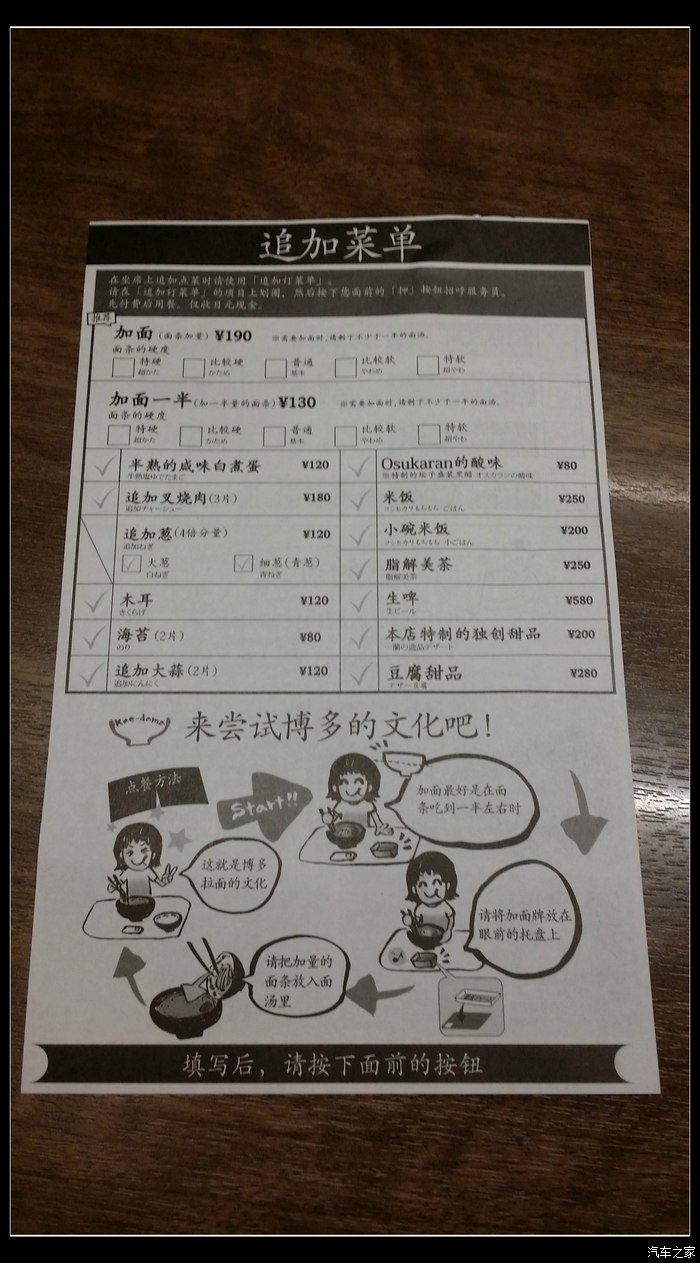 追加菜单
在坐席上追加点菜时请使用「追加订菜单」。
请在「追加订菜单」的项目上划圈，然后按下您面前的「押」按钮招呼服务员。
先付费后用餐。仅收日元现金。
推荐
加面(面条加量) ¥190 ※需要加面时，请剩下不少于一半的面汤。
面条的硬度
特硬 比较硬 普通 比较软 特软
超かた かため 基本 やわめ 超やわ
加面一半(加一半量的面条) ¥130 ※需要加面时，请剩下不少于一半的面汤。
面条的硬度
特硬 比较硬 普通 比较软 特软
超かた かため 基本 やわめ 超やわ
半熟的咸味白煮蛋 ¥120
半熟塩ゆでたまご
追加叉烧肉(3片) ¥180
追加チャーシュー
追加葱(4倍分量) ¥120
追加ねぎ
大葱 细葱(青葱)
白ねぎ 青ねぎ
木耳 ¥120
きくらげ
海苔(2片) ¥80
のり
追加大蒜(2片) ¥120
追加にんにく
Osukaran的酸味 ¥80
※特制的坛子盛装黑醋 オスカランの酸味
米饭 ¥250
コシヒカリもちもち ごはん
小碗米饭 ¥200
コシヒカリもちもち 小ごはん
脂解美茶 ¥250
脂解美茶
生啤 ¥580
生ビール
本店特制的独创甜品 ¥200
一蘭の逸品デザート
豆腐甜品 ¥280
デザー豆腐
Kae-dama
来尝试博多的文化吧!
点餐方法
Start!!
加面最好是在面
条吃到一半左右时
请将加面牌放在
眼前的托盘上
请把加量的
面条放入面
汤里
这就是博多
拉面的文化
填写后，请按下面前的按钮
汽车之家